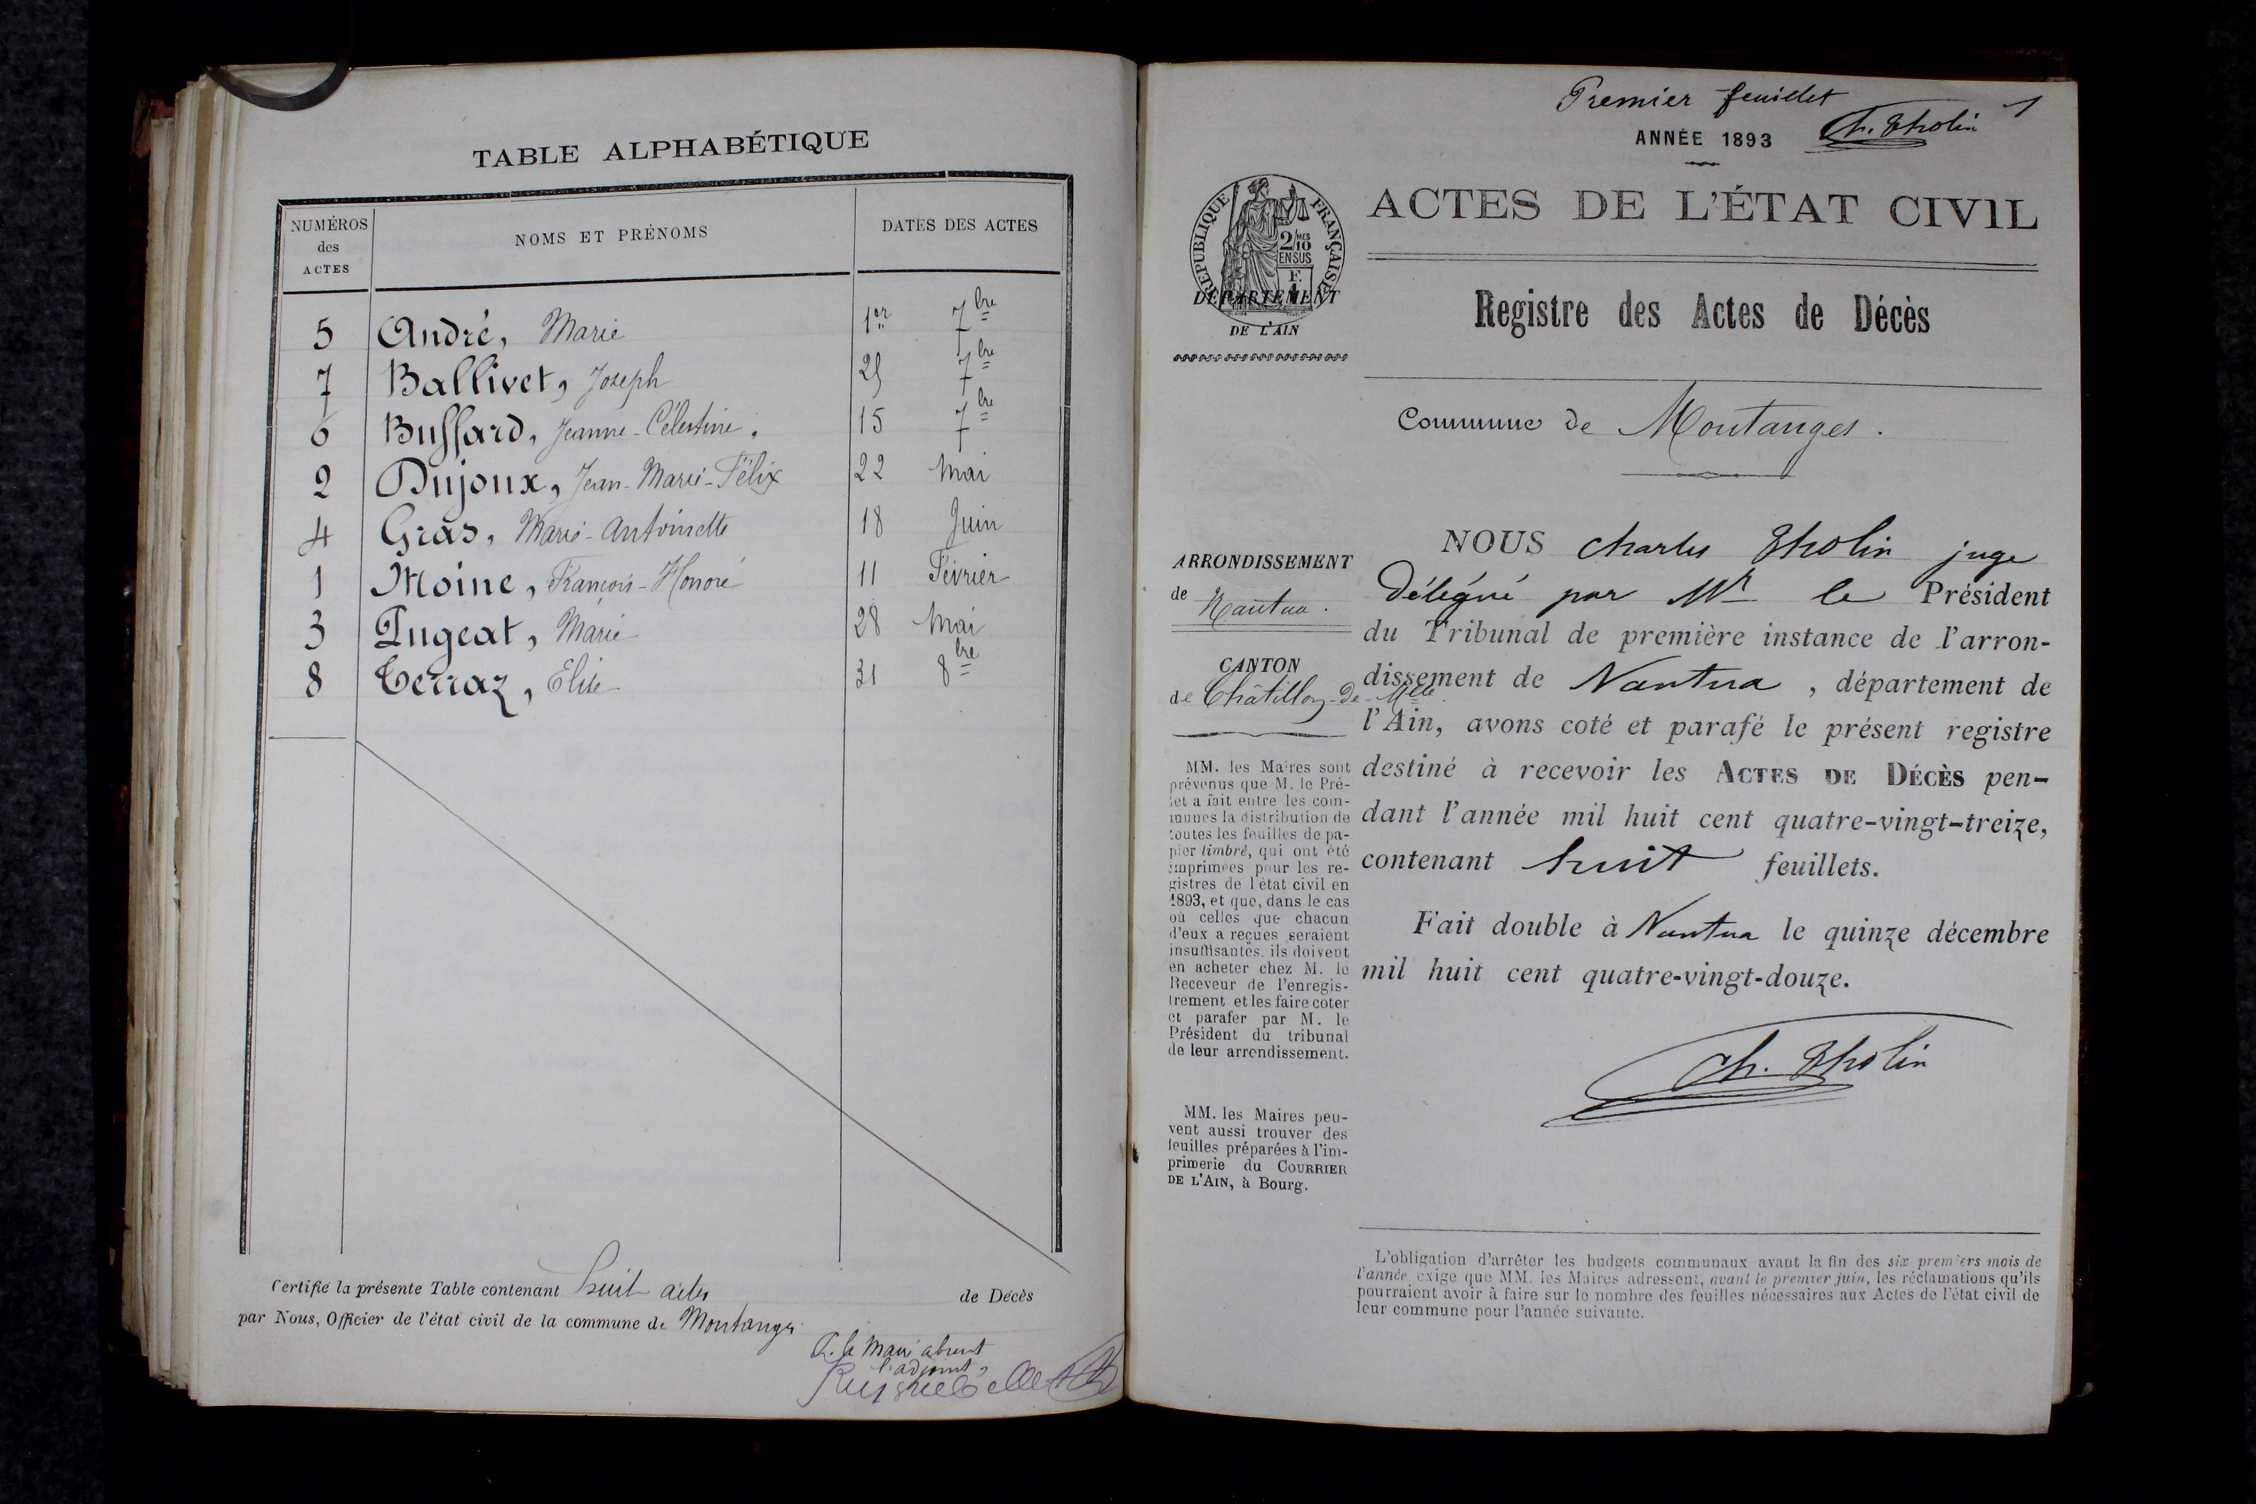 TABLE ALPHABÉTIQUE
NUMÉROS des ACTES | NOMS ET PRÉNOMS | DATES DES ACTES
5 André, Marie 1er 7bre
7 Ballivet, Joseph 25 7bre
6 Bussard, Jeanne-Célestine. 15 7bre
2 Dujoux, Jean-Marie-Félix 22 Mai
4 Gras, Marie-Antoinette 18 Juin
1 Moine, François-Honoré 11 Février
3 Pugeat, Marie 28 Mai
8 Terraz, Elise 31 8bre
Certifié la présente Table contenant huit actes de Décès
par Nous, Officier de l'état civil de la commune de Montanges
P. le Maire absent
l'adjoint,
Premier feuillet 1
Ch. Tholin
ANNÉE 1893
RÉPUBLIQUE FRANÇAISE
2/10 MES
EN SUS
DÉPARTEMENT
DE L'AIN
ACTES DE L'ÉTAT CIVIL
Registre des Actes de Décès
Commune de Montanges.
ARRONDISSEMENT
de Nantua.
CANTON
de Châtillon-de-Mlle.
MM. les Maires sont
prévenus que M. le Pré-
fet a fait entre les com-
munes la distribution de
toutes les feuilles de pa-
pier timbré, qui ont été
imprimées pour les re-
gistres de l'état civil en
1893, et que, dans le cas
où celles que chacun
d'eux a reçues seraient
insuffisantes, ils doivent
en acheter chez M. le
Receveur de l'enregis-
trement et les faire coter
et parafer par M. le
Président du tribunal
de leur arrondissement.
MM. les Maires peu-
vent aussi trouver des
feuilles préparées à l'im-
primerie du COURRIER
DE L'AIN, à Bourg.
NOUS Charles Tholin juge
délégué par Mr le Président
du Tribunal de première instance de l'arron-
dissement de Nantua, département de
l'Ain, avons coté et parafé le présent registre
destiné à recevoir les ACTES DE DÉCÈS pen-
dant l'année mil huit cent quatre-vingt-treize,
contenant huit feuillets.
Fait double à Nantua le quinze décembre
mil huit cent quatre-vingt-douze.
Ch. Tholin
L'obligation d'arrêter les budgets communaux avant la fin des six premiers mois de
l'année exige que MM. les Maires adressent, avant le premier juin, les réclamations qu'ils
pourraient avoir à faire sur le nombre des feuilles nécessaires aux Actes de l'état civil de
leur commune pour l'année suivante.